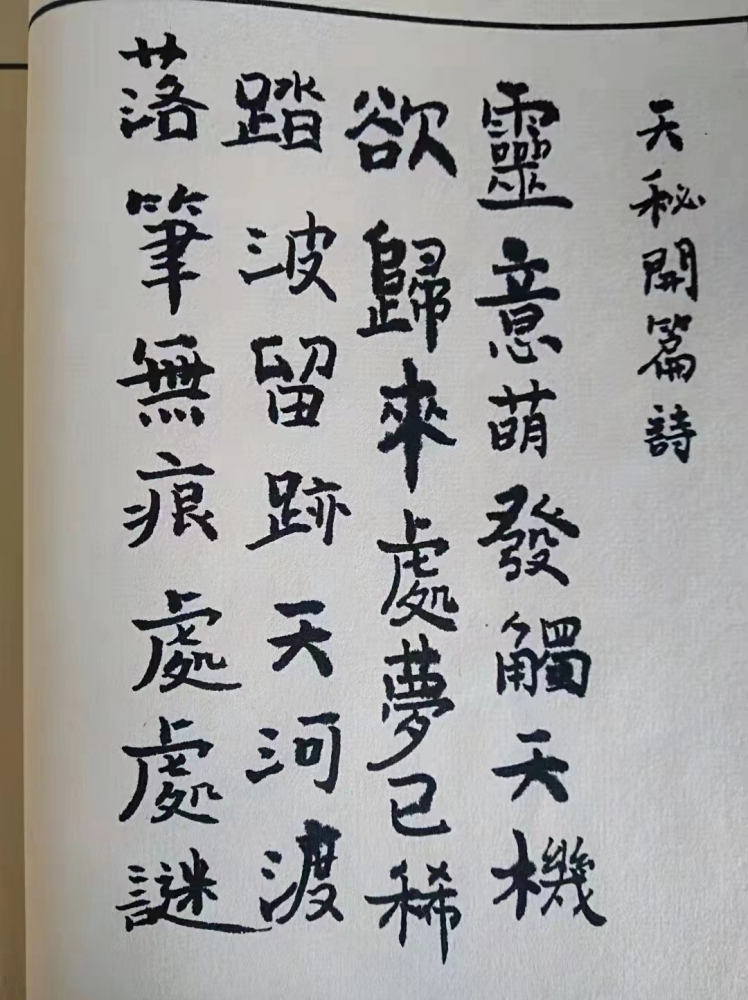 天秘開篇詩
靈意萌發觸天機
欲歸來處夢已稀
踏波留跡天河渡
落筆無痕處處謎